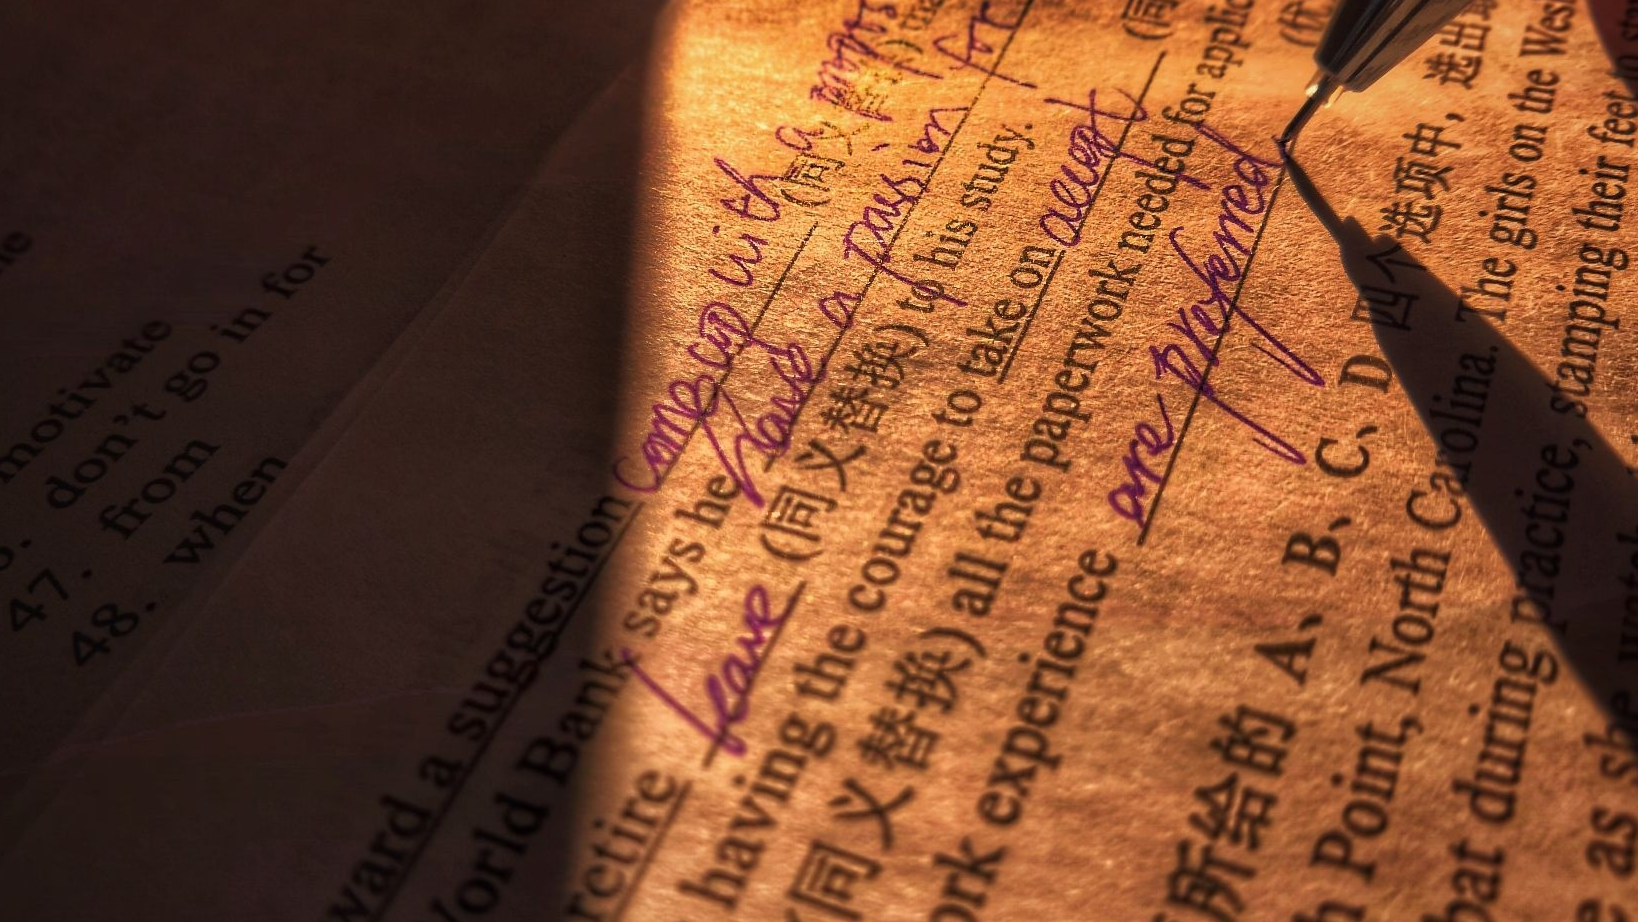 motivate
don't go in for
47. from
48. when
ward a suggestion come up with a
(同义替
World Bank says he have a passion for
retire leave (同义替换) to his study.
having the courage to take on accept
(同义替换) all the paperwork needed for applic
ork experience are preferred
所给的 A、B、C、D 四个选项中，选出
h Point, North Carolina. The girls on the Wes
oat during practice, stamping their feet
e as she